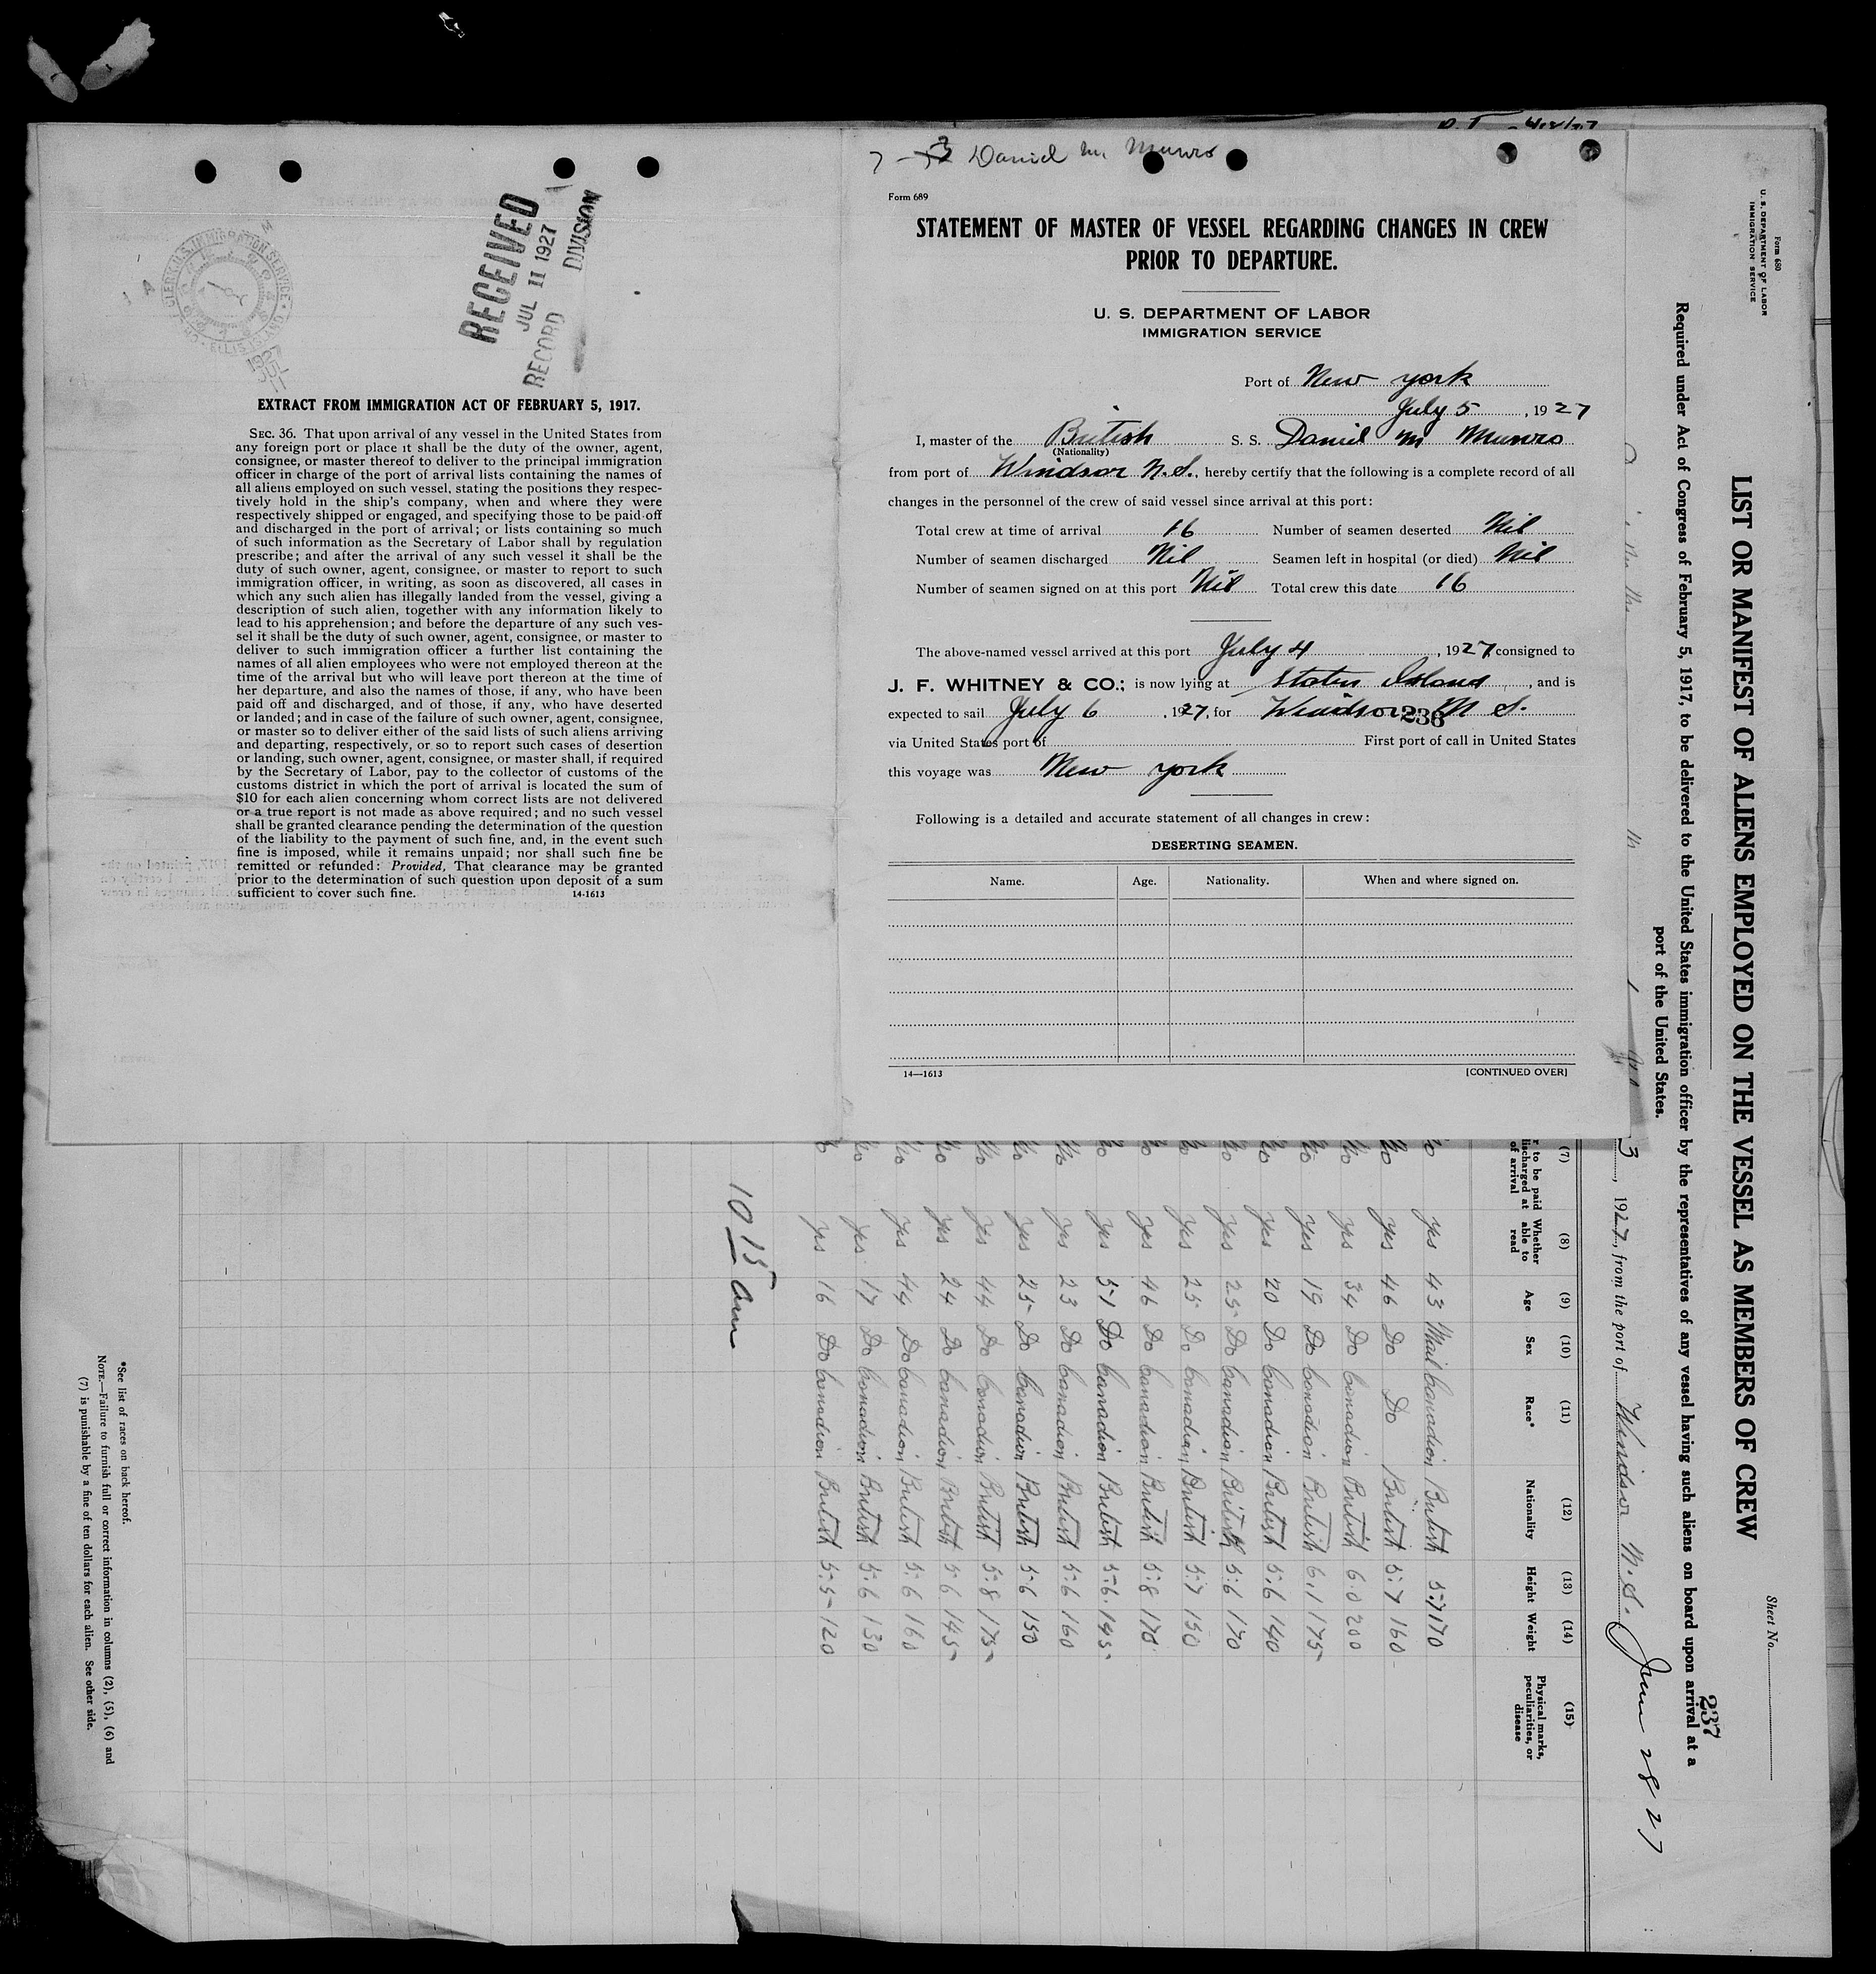 7 - 3 Daniel M. Munro
Form 689
STATEMENT OF MASTER OF VESSEL REGARDING CHANGES IN CREW
PRIOR TO DEPARTURE.
U. S. DEPARTMENT OF LABOR
IMMIGRATION SERVICE
Port of New York
July 5, 1927
I, master of the British S. S. Daniel M Munro
(Nationality)
from port of Windsor N.S., hereby certify that the following is a complete record of all
changes in the personnel of the crew of said vessel since arrival at this port:
Total crew at time of arrival 16 Number of seamen deserted Nil
Number of seamen discharged Nil Seamen left in hospital (or died) Nil
Number of seamen signed on at this port Nil Total crew this date 16
The above-named vessel arrived at this port July 4, 1927, consigned to
J. F. WHITNEY & CO.; is now lying at Staten Island, and is
expected to sail July 6, 1927, for Windsor N S.
236
via United States port of First port of call in United States
this voyage was New York
Following is a detailed and accurate statement of all changes in crew:
DESERTING SEAMEN.
Name. Age. Nationality. When and where signed on.
14—1613 [CONTINUED OVER]
RECEIVED
JUL 11 1927
RECORD DIVISION
EXTRACT FROM IMMIGRATION ACT OF FEBRUARY 5, 1917.
SEC. 36. That upon arrival of any vessel in the United States from
any foreign port or place it shall be the duty of the owner, agent,
consignee, or master thereof to deliver to the principal immigration
officer in charge of the port of arrival lists containing the names of
all aliens employed on such vessel, stating the positions they respec-
tively hold in the ship's company, when and where they were
respectively shipped or engaged, and specifying those to be paid off
and discharged in the port of arrival; or lists containing so much
of such information as the Secretary of Labor shall by regulation
prescribe; and after the arrival of any such vessel it shall be the
duty of such owner, agent, consignee, or master to report to such
immigration officer, in writing, as soon as discovered, all cases in
which any such alien has illegally landed from the vessel, giving a
description of such alien, together with any information likely to
lead to his apprehension; and before the departure of any such ves-
sel it shall be the duty of such owner, agent, consignee, or master to
deliver to such immigration officer a further list containing the
names of all alien employees who were not employed thereon at the
time of the arrival but who will leave port thereon at the time of
her departure, and also the names of those, if any, who have been
paid off and discharged, and of those, if any, who have deserted
or landed; and in case of the failure of such owner, agent, consignee,
or master so to deliver either of the said lists of such aliens arriving
and departing, respectively, or so to report such cases of desertion
or landing, such owner, agent, consignee, or master shall, if required
by the Secretary of Labor, pay to the collector of customs of the
customs district in which the port of arrival is located the sum of
$10 for each alien concerning whom correct lists are not delivered
or a true report is not made as above required; and no such vessel
shall be granted clearance pending the determination of the question
of the liability to the payment of such fine, and, in the event such
fine is imposed, while it remains unpaid; nor shall such fine be
remitted or refunded: Provided, That clearance may be granted
prior to the determination of such question upon deposit of a sum
sufficient to cover such fine. 14-1613
Form 680
U. S. DEPARTMENT OF LABOR
IMMIGRATION SERVICE
Sheet No.
LIST OR MANIFEST OF ALIENS EMPLOYED ON THE VESSEL AS MEMBERS OF CREW
237
Required under Act of Congress of February 5, 1917, to be delivered to the United States immigration officer by the representatives of any vessel having such aliens on board upon arrival at a
port of the United States.
3, 1927, from the port of Windsor N.S. June 28 27
(7) (8) (9) (10) (11) (12) (13) (14) (15)
to be paid Whether able to read Age Sex Race* Nationality Height Weight Physical marks, peculiarities, or disease
at of arrival
No yes 43 Mail Canadian British 5:7 170
No yes 46 Do Do British 5:7 160
No yes 34 Do Canadian British 6:0 200
No yes 19 Do Canadian British 6,1 175
No yes 20 Do Canadian British 5:6 140
No yes 25 Do Canadian British 5:6 170
No yes 25 Do Canadian British 5:7 150
No yes 46 Do Canadian British 5:8 170
No yes 51 Do Canadian British 5-6 145
No yes 23 Do Canadian British 5:6 160
No yes 25 Do Canadian British 5-6 150
No yes 44 Do Canadian British 5:8 175
No yes 24 Do Canadian British 5:6 145
No yes 44 Do Canadian British 5:6 160
No yes 17 Do Canadian British 5:6 130
No yes 16 Do Canadian British 5:5 120
10 15 am
*See list of races on back hereof.
NOTE.—Failure to furnish full or correct information in columns (2), (5), (6) and
(7) is punishable by a fine of ten dollars for each alien. See other side.